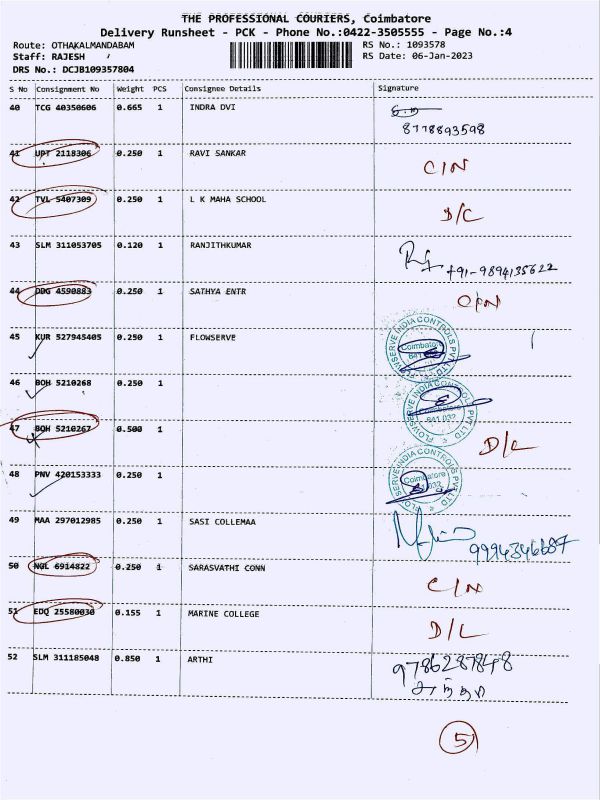 THE PROFESSIONAL COURIERS, Coimbatore
Delivery Runsheet - PCK - Phone No.:0422-3505555 - Page No.:4
Route: OTHAKALMANDABAM RS No.: 1093578
Staff: RAJESH RS Date: 06-Jan-2023
DRS No.: DCJB109357804
S No Consignment No Weight PCS Consignee Details Signature
40 TCG 40350606 0.665 1 INDRA DVI
8778893598
41 UPT 2118306 0.250 1 RAVI SANKAR C/N
42 TVL 5407309 0.250 1 L K MAHA SCHOOL D/C
43 SLM 311053705 0.120 1 RANJITHKUMAR +91-9894135622
44 DDG 4590883 0.250 1 SATHYA ENTR C/N
45 KUR 527945405 0.250 1 FLOWSERVE
FLOWSERVE INDIA CONTROLS PVT LTD
Coimbatore
641 032
46 BOH 5210268 0.250 1
FLOWSERVE INDIA CONTROLS PVT LTD
Coimbatore
641 032
47 BOH 5210267 0.500 1 D/L
48 PNV 420153333 0.250 1
FLOWSERVE INDIA CONTROLS PVT LTD
Coimbatore
641 032
49 MAA 297012985 0.250 1 SASI COLLEMAA 9994346687
50 NGL 6914822 0.250 1 SARASVATHI CONN C/N
51 EDQ 25580030 0.155 1 MARINE COLLEGE D/L
52 SLM 311185048 0.850 1 ARTHI 9786287848
5